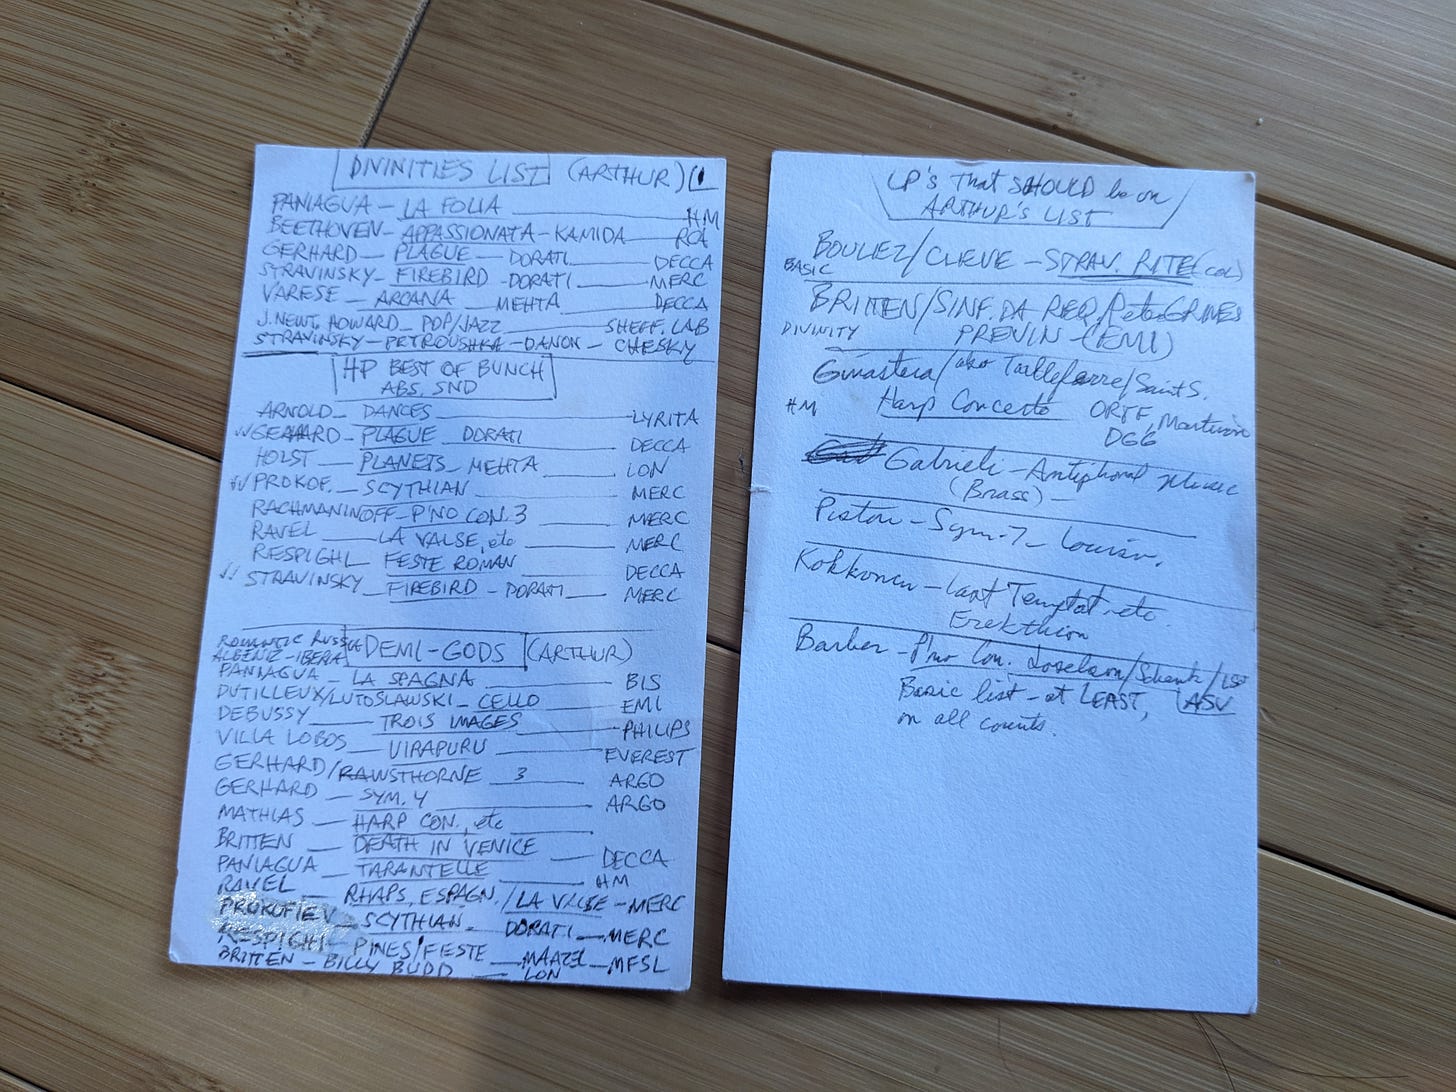 DIVINITIES LIST (ARTHUR) 1
PANIAGUA – LA FOLIA HM
BEETHOVEN – APPASSIONATA – KAMIDA RCA
GERHARD – PLAGUE – DORATI DECCA
STRAVINSKY – FIREBIRD – DORATI MERC
VARESE – ARCANA – MEHTA DECCA
J. NEWT. HOWARD – POP/JAZZ SHEFF. LAB
STRAVINSKY – PETROUSHKA – DANON – CHESKY
HP BEST OF BUNCH
ABS. SND
ARNOLD – DANCES LYRITA
✓✓ GERHARD – PLAGUE DORATI DECCA
HOLST – PLANETS – MEHTA LON
✓✓ PROKOF. – SCYTHIAN MERC
RACHMANINOFF – P'NO CON. 3 MERC
RAVEL – LA VALSE, etc MERC
RESPIGHI FESTE ROMAN DECCA
✓✓ STRAVINSKY – FIREBIRD – DORATI MERC
ROMANTIC RUSSIA
ALBENIZ – IBERIA DEMI-GODS (ARTHUR)
PANIAGUA – LA SPAGNA BIS
DUTILLEUX/LUTOSLAWSKI – CELLO EMI
DEBUSSY – TROIS IMAGES PHILIPS
VILLA LOBOS – UIRAPURU EVEREST
GERHARD/RAWSTHORNE 3 ARGO
GERHARD – SYM. 4 ARGO
MATHIAS – HARP CON., etc
BRITTEN – DEATH IN VENICE DECCA
PANIAGUA – TARANTELLE HM
RAVEL – RHAPS. ESPAGN./LA VALSE – MERC
PROKOFIEV – SCYTHIAN – DORATI – MERC
RESPIGHI – PINES/FESTE – MAAZEL – MFSL
BRITTEN – BILLY BUDD – LON
LP's That SHOULD be on
ARTHUR'S LIST
BOULEZ/CLEVE – STRAV. RITE (COL)
BASIC
BRITTEN/SINF. DA REQ/Peter GRIMES
DIVINITY PREVIN – (EMI)
Ginastera/also Tailleferre/Saint S.
HM Harp Concerto ORTF, Martinon
DGG
Gabrieli – Antiphonal Music
(Brass) –
Piston – Sym. 7 – Louisv.
Kokkonen – Last Temptat. etc.
Erekthion
Barber – Pno Con. Joselson/Schenk/LSO
Basic list – at LEAST, ASV
on all counts.